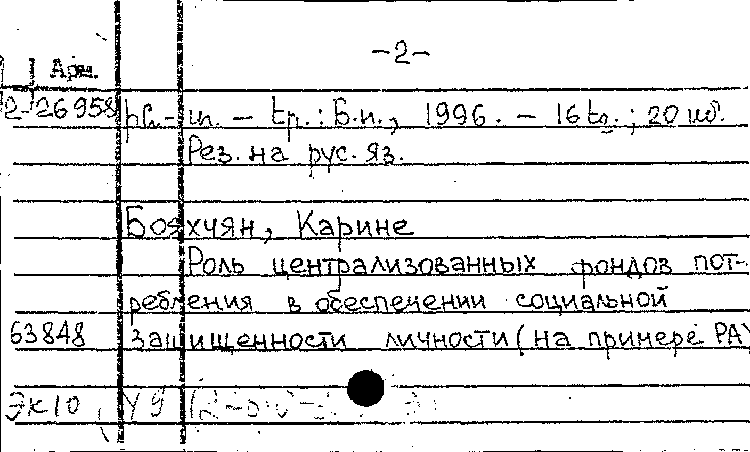 -2-
Арм.
2-26958
Եր.: Б.и., 1996. - 16 էջ; 20 սմ.
Рез. на рус. яз.
Бояхчян, Карине
Роль централизованных фондов пот-
ребления в обеспечении социальной
63848 защищенности личности (на примере РА)
ЭК10 У9